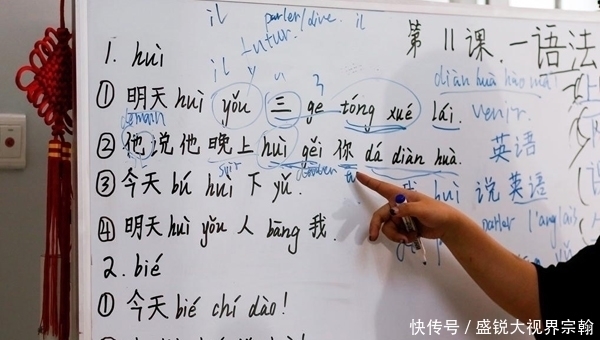 il parler/dire. il
futur.
第 11 课. 一语法
1. huì
il y a
diàn huà hào mǎ!
① 明天 huì yǒu 三 ge tóng xué lái. venir.
② 他说他晚上 huì gěi 你 dá diàn huà. 英语
soir tu
③ 今天 bú huì 下 yǔ. huì 说英语
④ 明天 huì yǒu 人 bāng 我. parler l'anglais
2. bié
① 今天 bié chí dào!
快传号/盛锐大视界宗翰